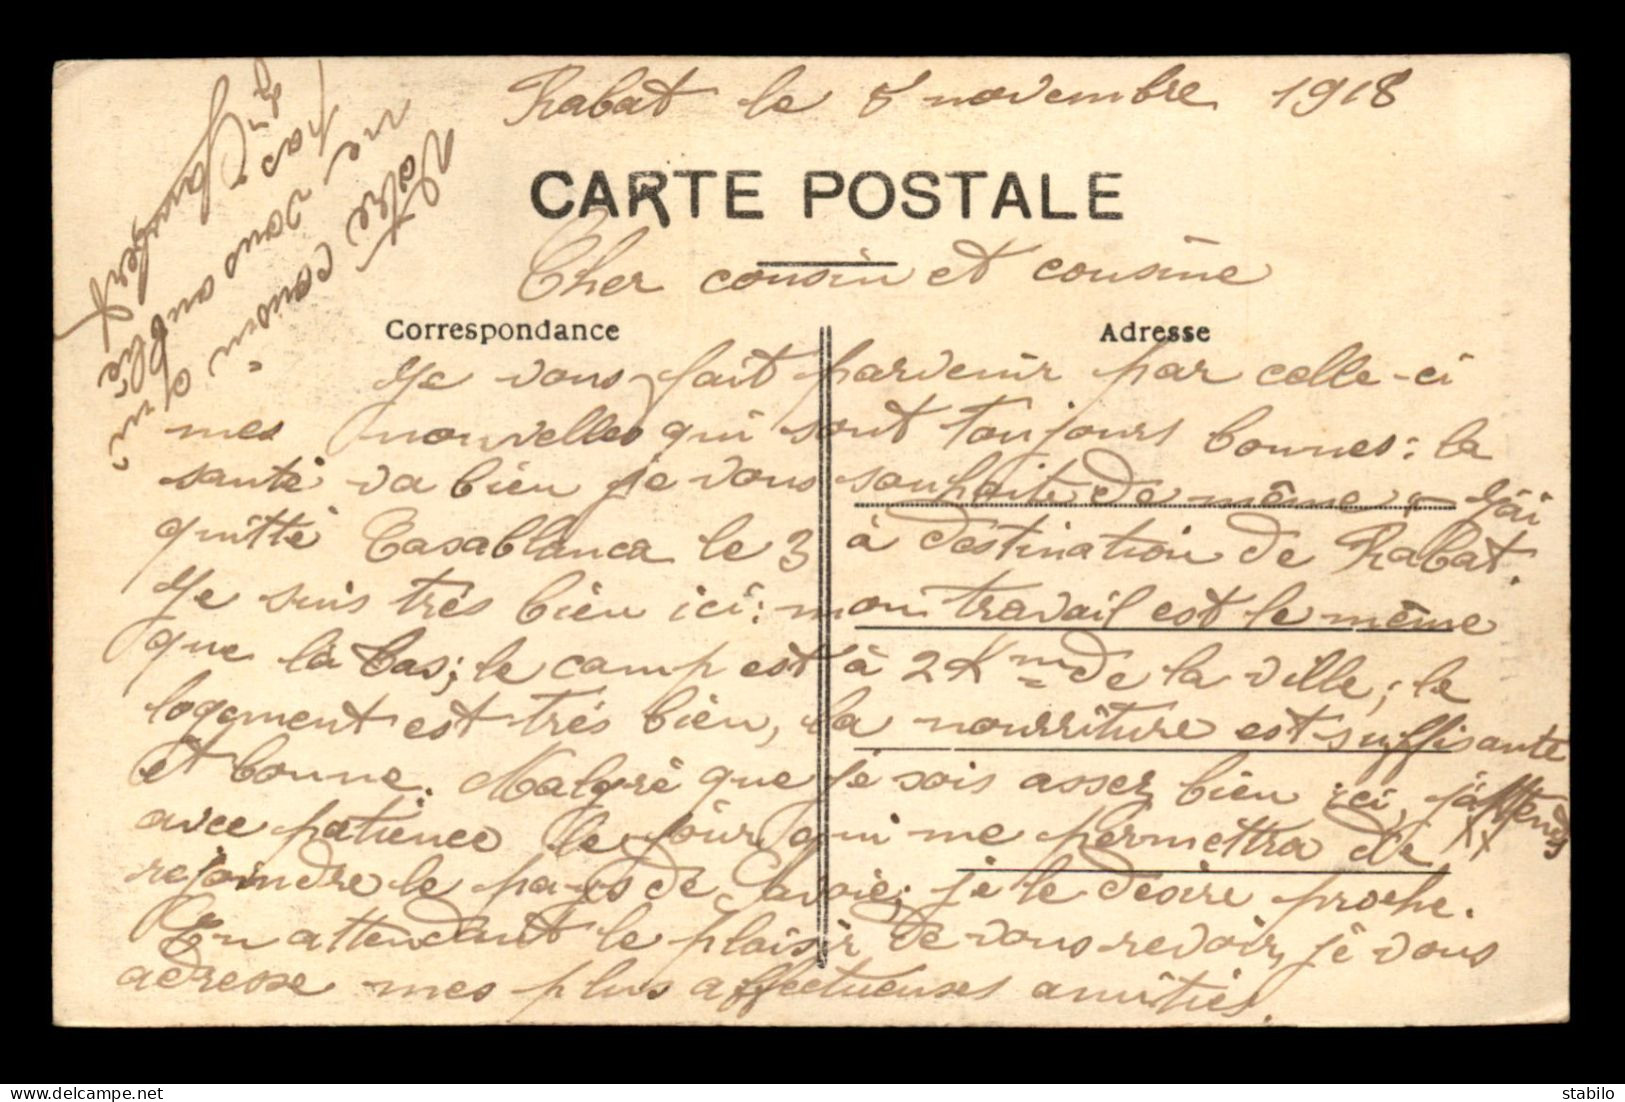 Rabat le 8 novembre 1918
CARTE POSTALE
Cher cousin et cousine
Correspondance
Adresse
Je vous fait parvenir par celle-ci
mes nouvelles qui sont toujours bonnes : la
santé va bien je vous souhaite de même ; J'ai
quitté Casablanca le 3 à destination de Rabat.
Je suis très bien ici : mon travail est le même
que là bas ; le camp est à 2 Km de la ville ; le
logement est très bien, la nourriture est suffisante
et bonne. Malgré que je sois assez bien ici, j'attends
avec patience le jour qui me permettra de
rejoindre le pays de Savoie ; je le désire proche.
En attendant le plaisir de vous revoir, je vous
adresse mes plus affectueuses amitiés.
Votre cousin qui
ne vous oublie
pas
stabilo